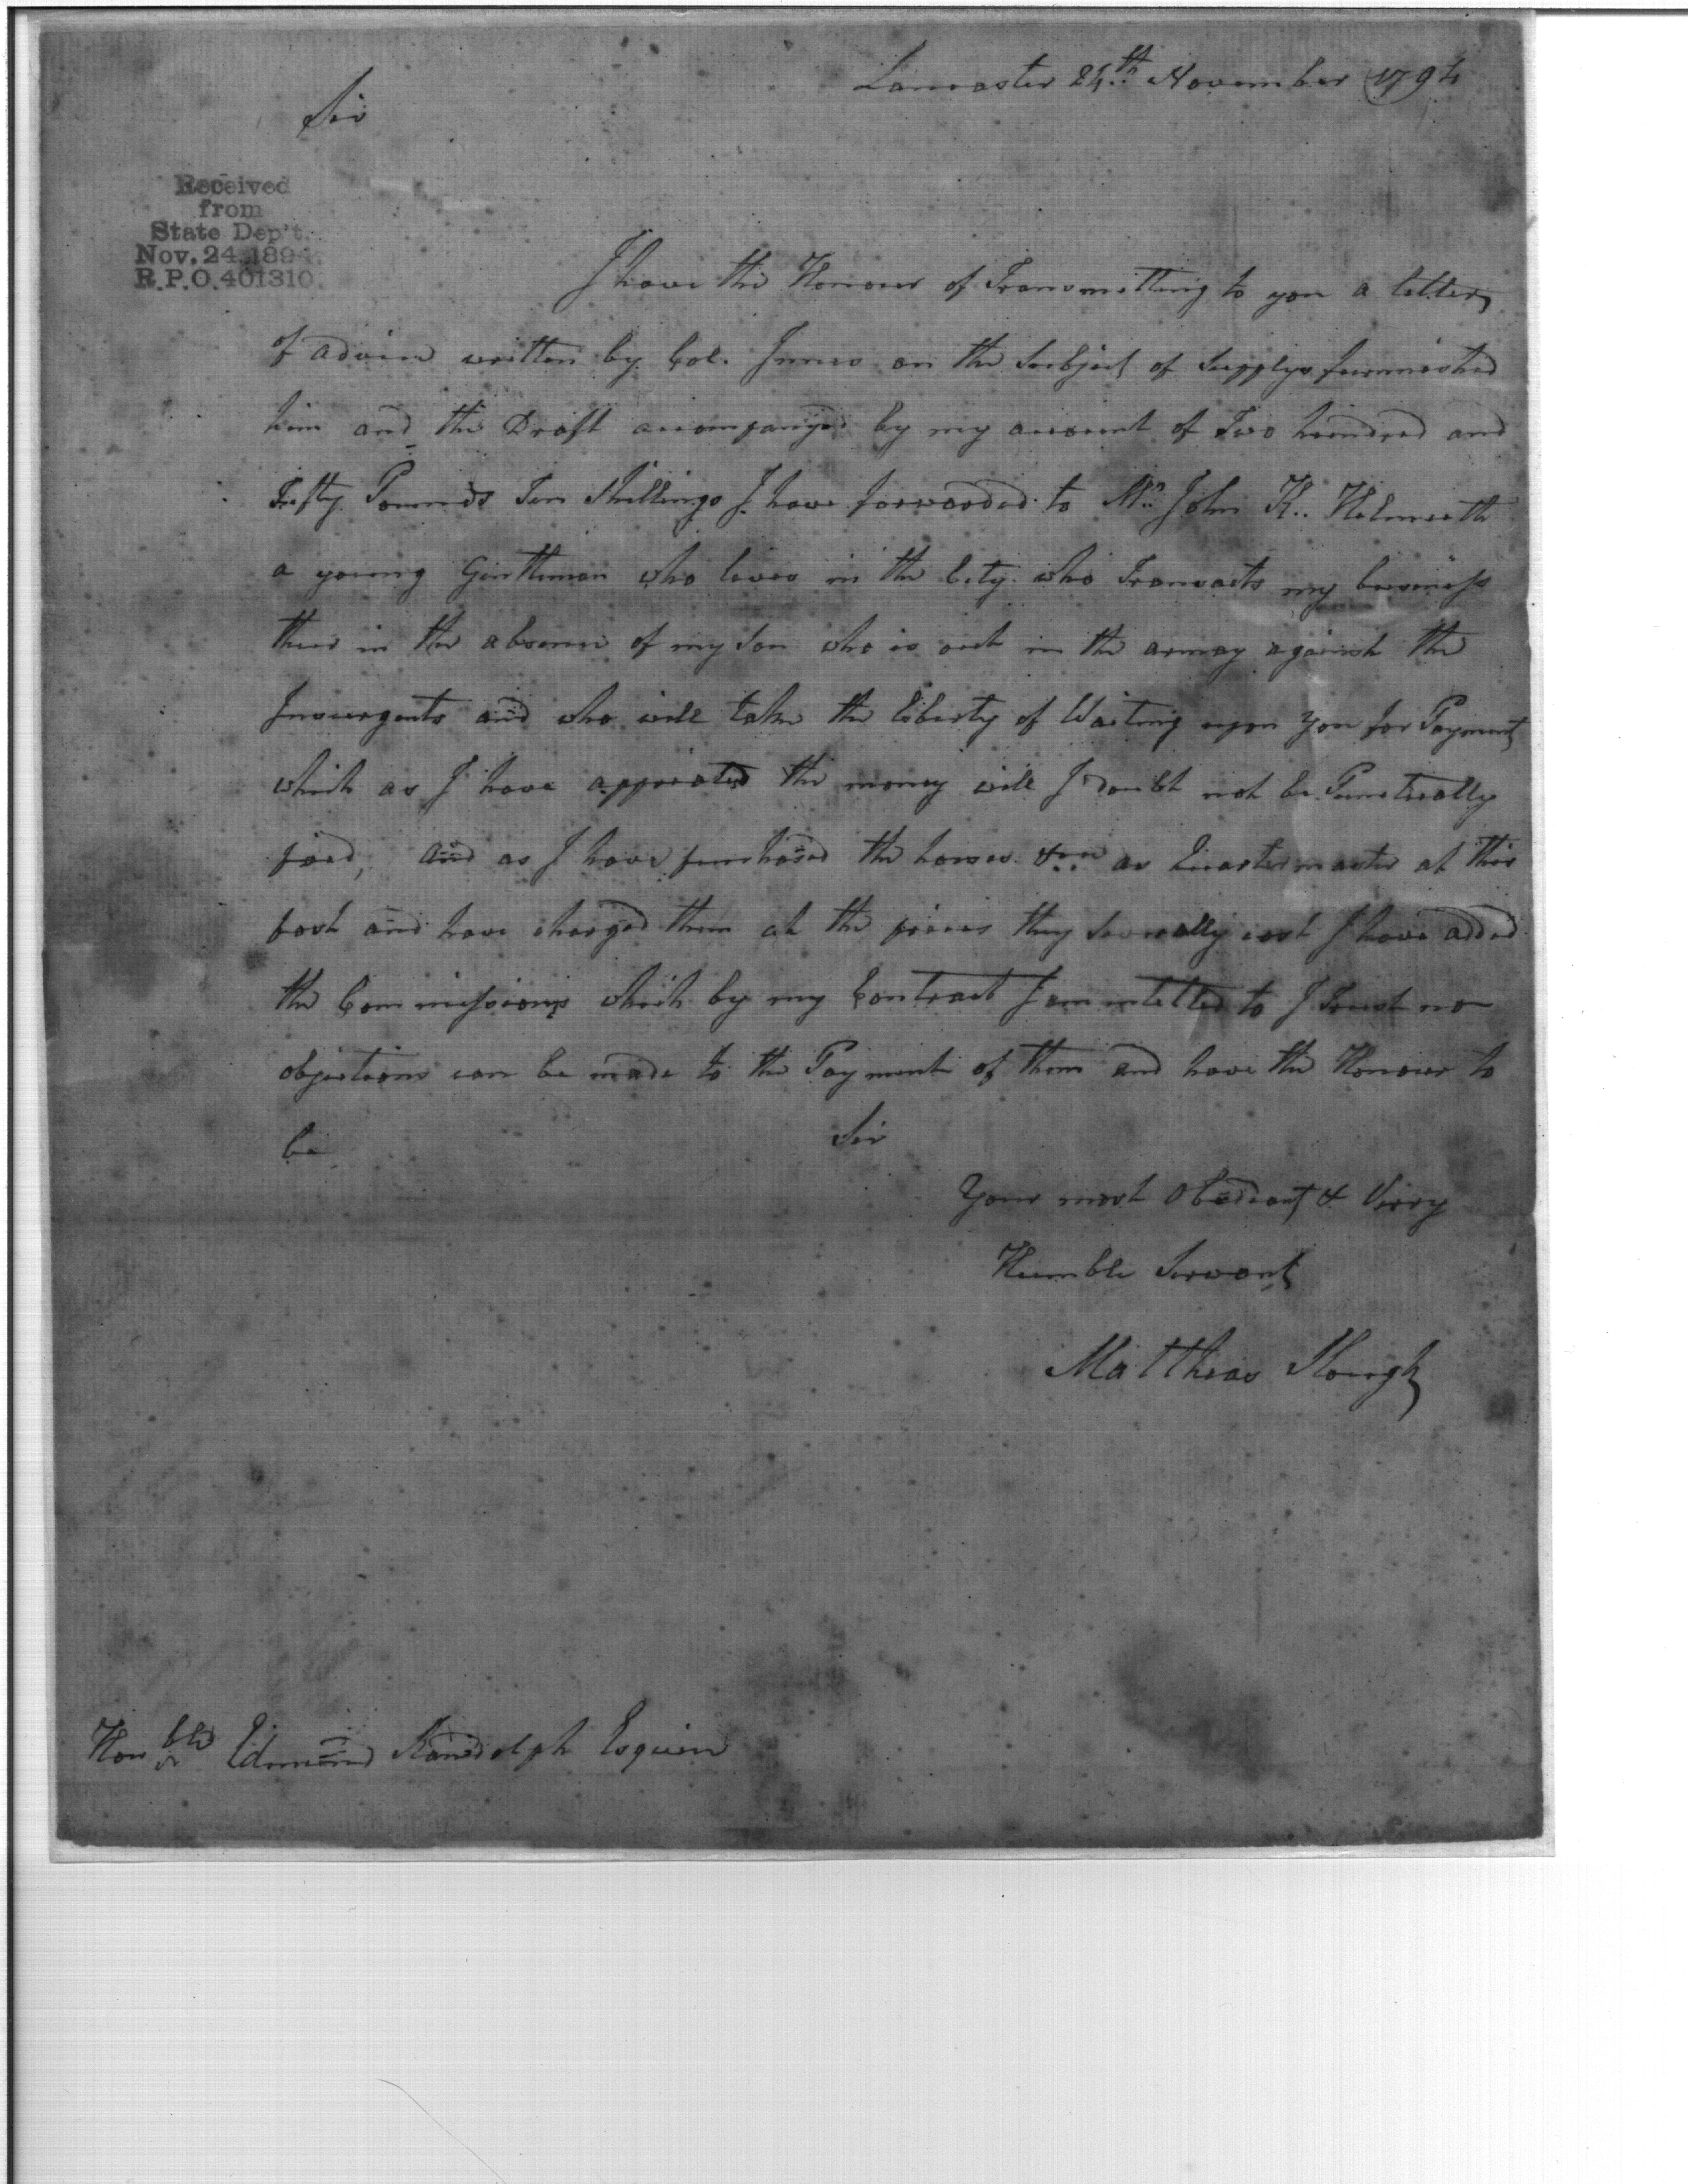 Lancaster 24th November 1794
Sir
Received
from
State Dep't.
Nov. 24, 1894.
R.P.O. 401310.
I have the Honour of Transmitting to you a letter
of advice written by Col. Innes on the Subject of Supplys furnnished
him and the Draft accompanyed by my account of Two hundred and
Fifty Pounds Ten Shillings I have forwarded to Mr. John K. Helmuth
a young Gentleman who lives in the City who Transacts my business
there in the absence of my Son who is out in the army against the
Insurgents and who will take the liberty of Waiting upon you for Payment
which as I have the money will I doubt not be Punctually
paid, and as I have purchased the horses &c. as Quartermaster at this
post and have charged them at the prices they severally cost I have added
the Commissions which by my Contract I am intitled to I trust no
objections can be made to the Payment of them and have the Honour to
be Sir
Your most Obediant & Verry
Humble Servant
Matthias Slough
Honble Edmund Randolph Esquire